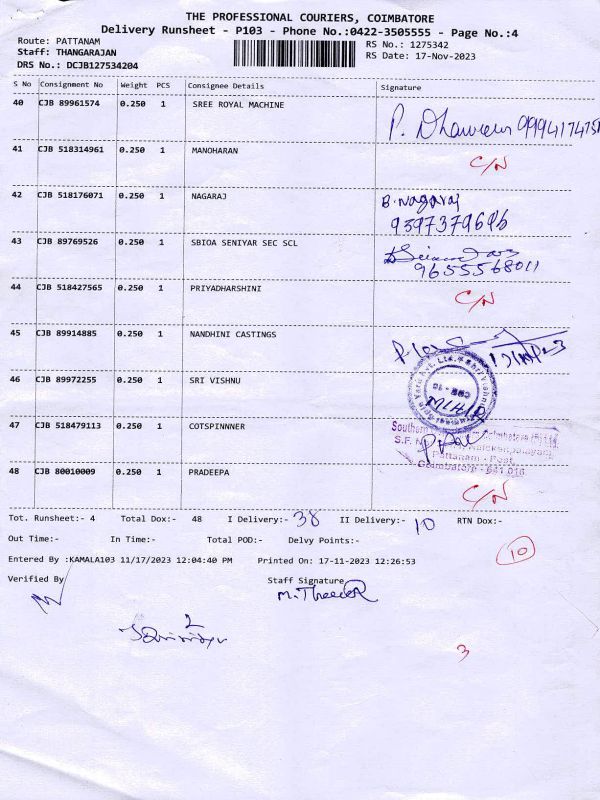 THE PROFESSIONAL COURIERS, COIMBATORE
Delivery Runsheet - P103 - Phone No.:0422-3505555 - Page No.:4
Route: PATTANAM
RS No.: 1275342
Staff: THANGARAJAN
RS Date: 17-Nov-2023
DRS No.: DCJB127534204
S No Consignment No Weight PCS Consignee Details Signature
40 CJB 89961574 0.250 1 SREE ROYAL MACHINE
41 CJB 518314961 0.250 1 MANOHARAN C/N
42 CJB 518176071 0.250 1 NAGARAJ B.Nagaraj
9397379686
43 CJB 89769526 0.250 1 SBIOA SENIYAR SEC SCL
9655568011
44 CJB 518427565 0.250 1 PRIYADHARSHINI C/N
45 CJB 89914885 0.250 1 NANDHINI CASTINGS
46 CJB 89972255 0.250 1 SRI VISHNU
47 CJB 518479113 0.250 1 COTSPINNNER
Southern
Pattanam - Post,
Coimbatore - 641 016
48 CJB 80010009 0.250 1 PRADEEPA C/N
Tot. Runsheet:- 4 Total Dox:- 48 I Delivery:- 38 II Delivery:- 10 RTN Dox:-
Out Time:- In Time:- Total POD:- Delvy Points:-
10
Entered By :KAMALA103 11/17/2023 12:04:40 PM Printed On: 17-11-2023 12:26:53
Verified By Staff Signature
3